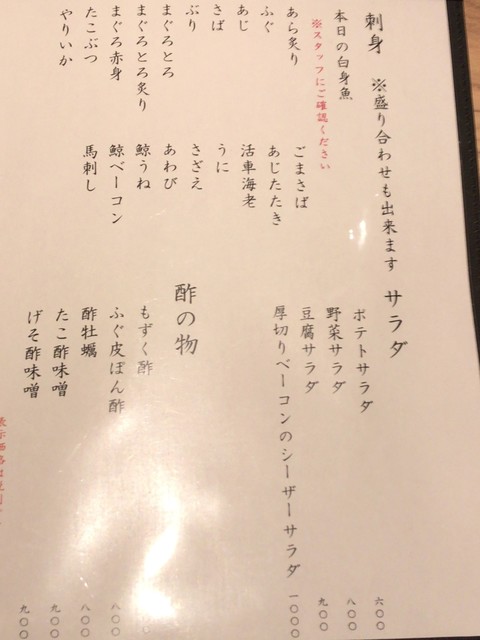 刺身　※盛り合わせも出来ます
本日の白身魚
※スタッフにご確認ください
あら炙り
ふぐ
あじ
さば
ぶり
まぐろとろ
まぐろとろ炙り
まぐろ赤身
たこぶつ
やりいか
ごまさば
あじたたき
活車海老
うに
さざえ
あわび
鯨うね
鯨ベーコン
馬刺し
サラダ
ポテトサラダ 六〇〇
野菜サラダ 八〇〇
豆腐サラダ 九〇〇
厚切りベーコンのシーザーサラダ 一〇〇〇
酢の物
もずく酢
ふぐ皮ぽん酢 八〇〇
酢牡蠣 八〇〇
たこ酢味噌 九〇〇
げそ酢味噌 九〇〇